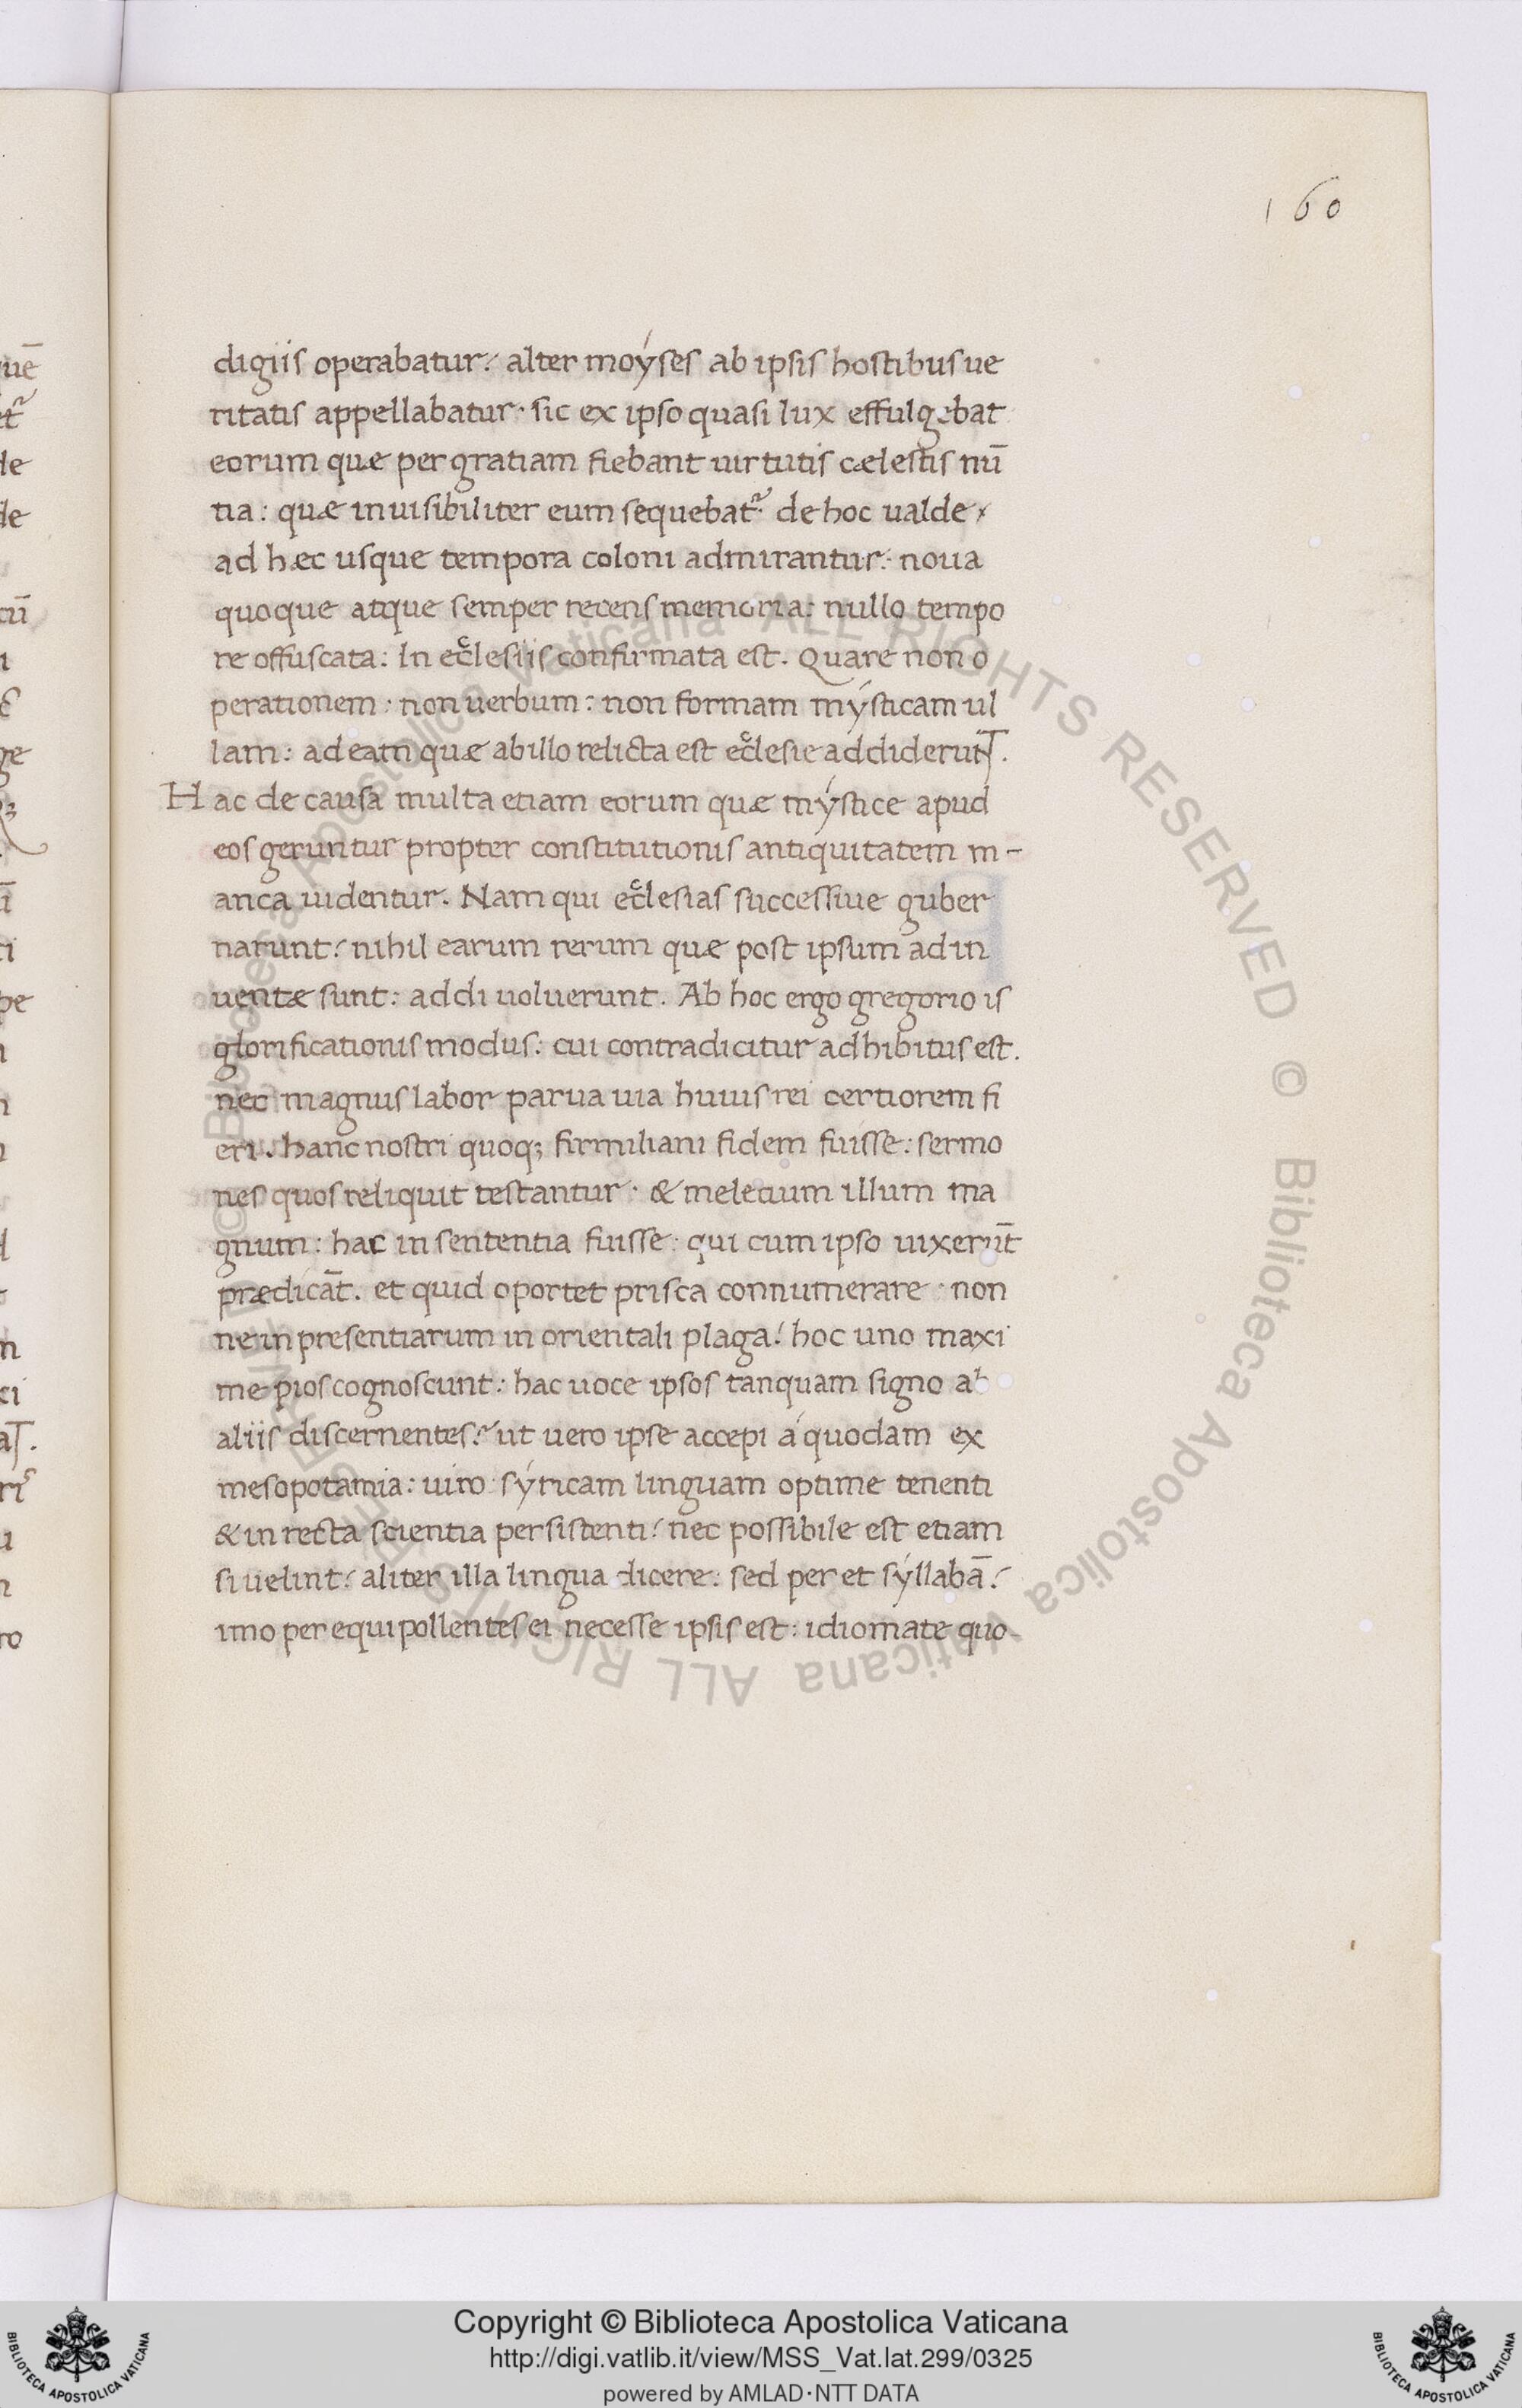 160
digiis operabatur: alter moyses ab ipsis hostibus ue
ritatis appellabatur· sic ex ipso quasi lux effulgebat
eorum quæ per gratiam fiebant uirtutis cælestis nū
tia: quæ inuisibiliter eum sequebat᷑· de hoc ualde
ad hæc usque tempora coloni admirantur: noua
quoque atque semper recens memoria: nullo tempo
re offuscata: In ecclesiis confirmata est. Quare non o
perationem: non uerbum: non formam mysticam ul
lam: ad eam quæ ab illo relicta est ecclesie addiderunt.
Hac de causa multa etiam eorum quæ mystice apud
eos geruntur propter constitutionis antiquitatem m-
anca uidentur. Nam qui ecclesias successiue guber
narunt: nihil earum rerum quæ post ipsum ad in
uentæ sunt: addi uoluerunt. Ab hoc ergo gregorio is
glorificationis modus: cui contradicitur adhibitus est.
nec magnus labor parua uia huius rei certiorem fi
eri. hanc nostri quoq; firmiliani fidem fuisse: sermo
nes quos reliquit testantur· & meletium illum ma
gnum: hac in sententia fuisse: qui cum ipso uixerūt
prædicāt. et quid oportet prisca connumerare: non
ne in presentiarum in orientali plaga: hoc uno maxi
me pios cognoscunt: hac uoce ipsos tanquam signo ab
aliis discernentes: ut uero ipse accepi á quodam ex
mesopotamia: uiro syricam linguam optime tenenti
& in recta scientia persistenti: nec possibile est etiam
si uelint: aliter illa lingua dicere: sed per et syllabā:
imo per equipollentes ei necesse ipsis est: idiomate quo-
Copyright © Biblioteca Apostolica Vaticana
http://digi.vatlib.it/view/MSS_Vat.lat.299/0325
powered by AMLAD·NTT DATA